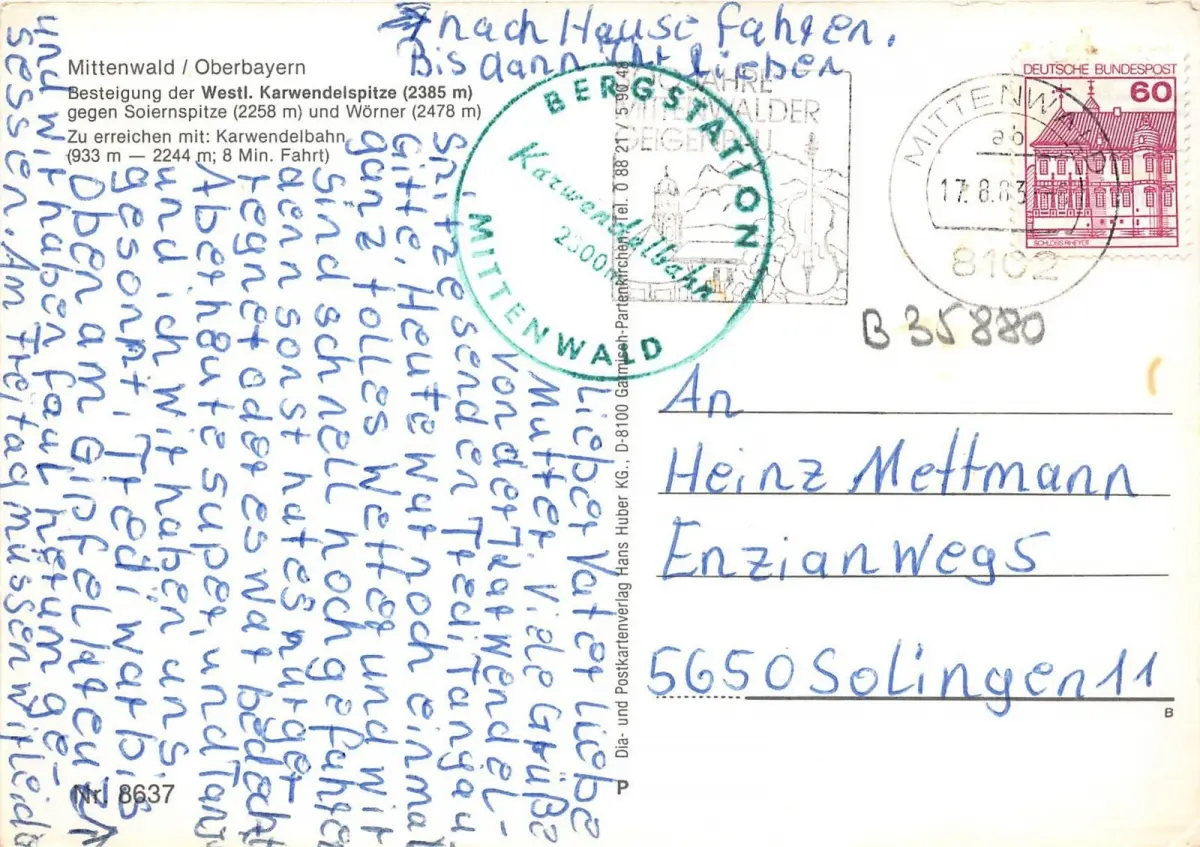 Mittenwald / Oberbayern
Besteigung der Westl. Karwendelspitze (2385 m)
gegen Soiernspitze (2258 m) und Wörner (2478 m)
Zu erreichen mit: Karwendelbahn
(933 m — 2244 m; 8 Min. Fahrt)
Lieber Vater liebe
Mutter. Viele Grüße
von der Karwendel-
Spitze senden Tredi, Tanja u.
Gitte. Heute war noch einmal
ganz tolles Wetter und wir
sind schnell hochgefahren
denn sonst hat es nur ge-
regnet oder es war bedeckt
Aber heute super, und Tanj
und ich wir haben uns
gesonnt, Tredi war bis
Oben am Gipfelkreuz
und wir haben faul herum ge-
sessen. Am Freitag müssen wir leider
nach Hause fahren.
Bis dann Ihr Lieben
BERGSTATION
Karwendelbahn
2300m
MITTENWALD
JAHRE
MITTENWALDER
GEIGENBAU
MITTENWALD
ab
17.8.83
8102
DEUTSCHE BUNDESPOST
60
SCHLOSS RHEYDT
B 35880
An
Heinz Mettmann
Enzianweg 5
5650 Solingen 11
B
Dia- und Postkartenverlag Hans Huber KG., D-8100 Garmisch-Partenkirchen, Tel. 0 88 21 / 5 90 48
P
Nr. 8637